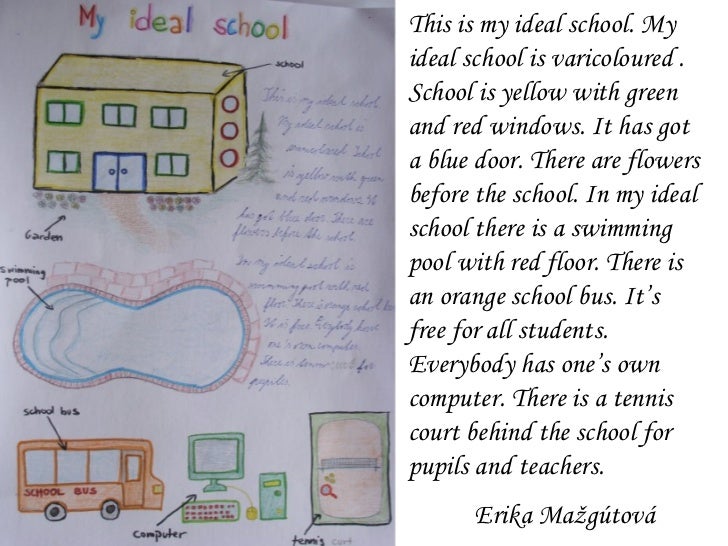 My ideal school
school
This is my ideal school.
My ideal school is
varicoloured. School
is yellow with green
and red windows. It
has got blue door. There are
flowers before the school.
Garden
In my ideal school is
swimming pool with red
floor. There is orange school bus
It is free. Everybody have
one's own computer.
There is tennis curt for
pupiles.
swimming
pool
school bus
SCHOOL BUS
computer
tennis curt
This is my ideal school. My
ideal school is varicoloured .
School is yellow with green
and red windows. It has got
a blue door. There are flowers
before the school. In my ideal
school there is a swimming
pool with red floor. There is
an orange school bus. It’s
free for all students.
Everybody has one’s own
computer. There is a tennis
court behind the school for
pupils and teachers.
Erika Mažgútová